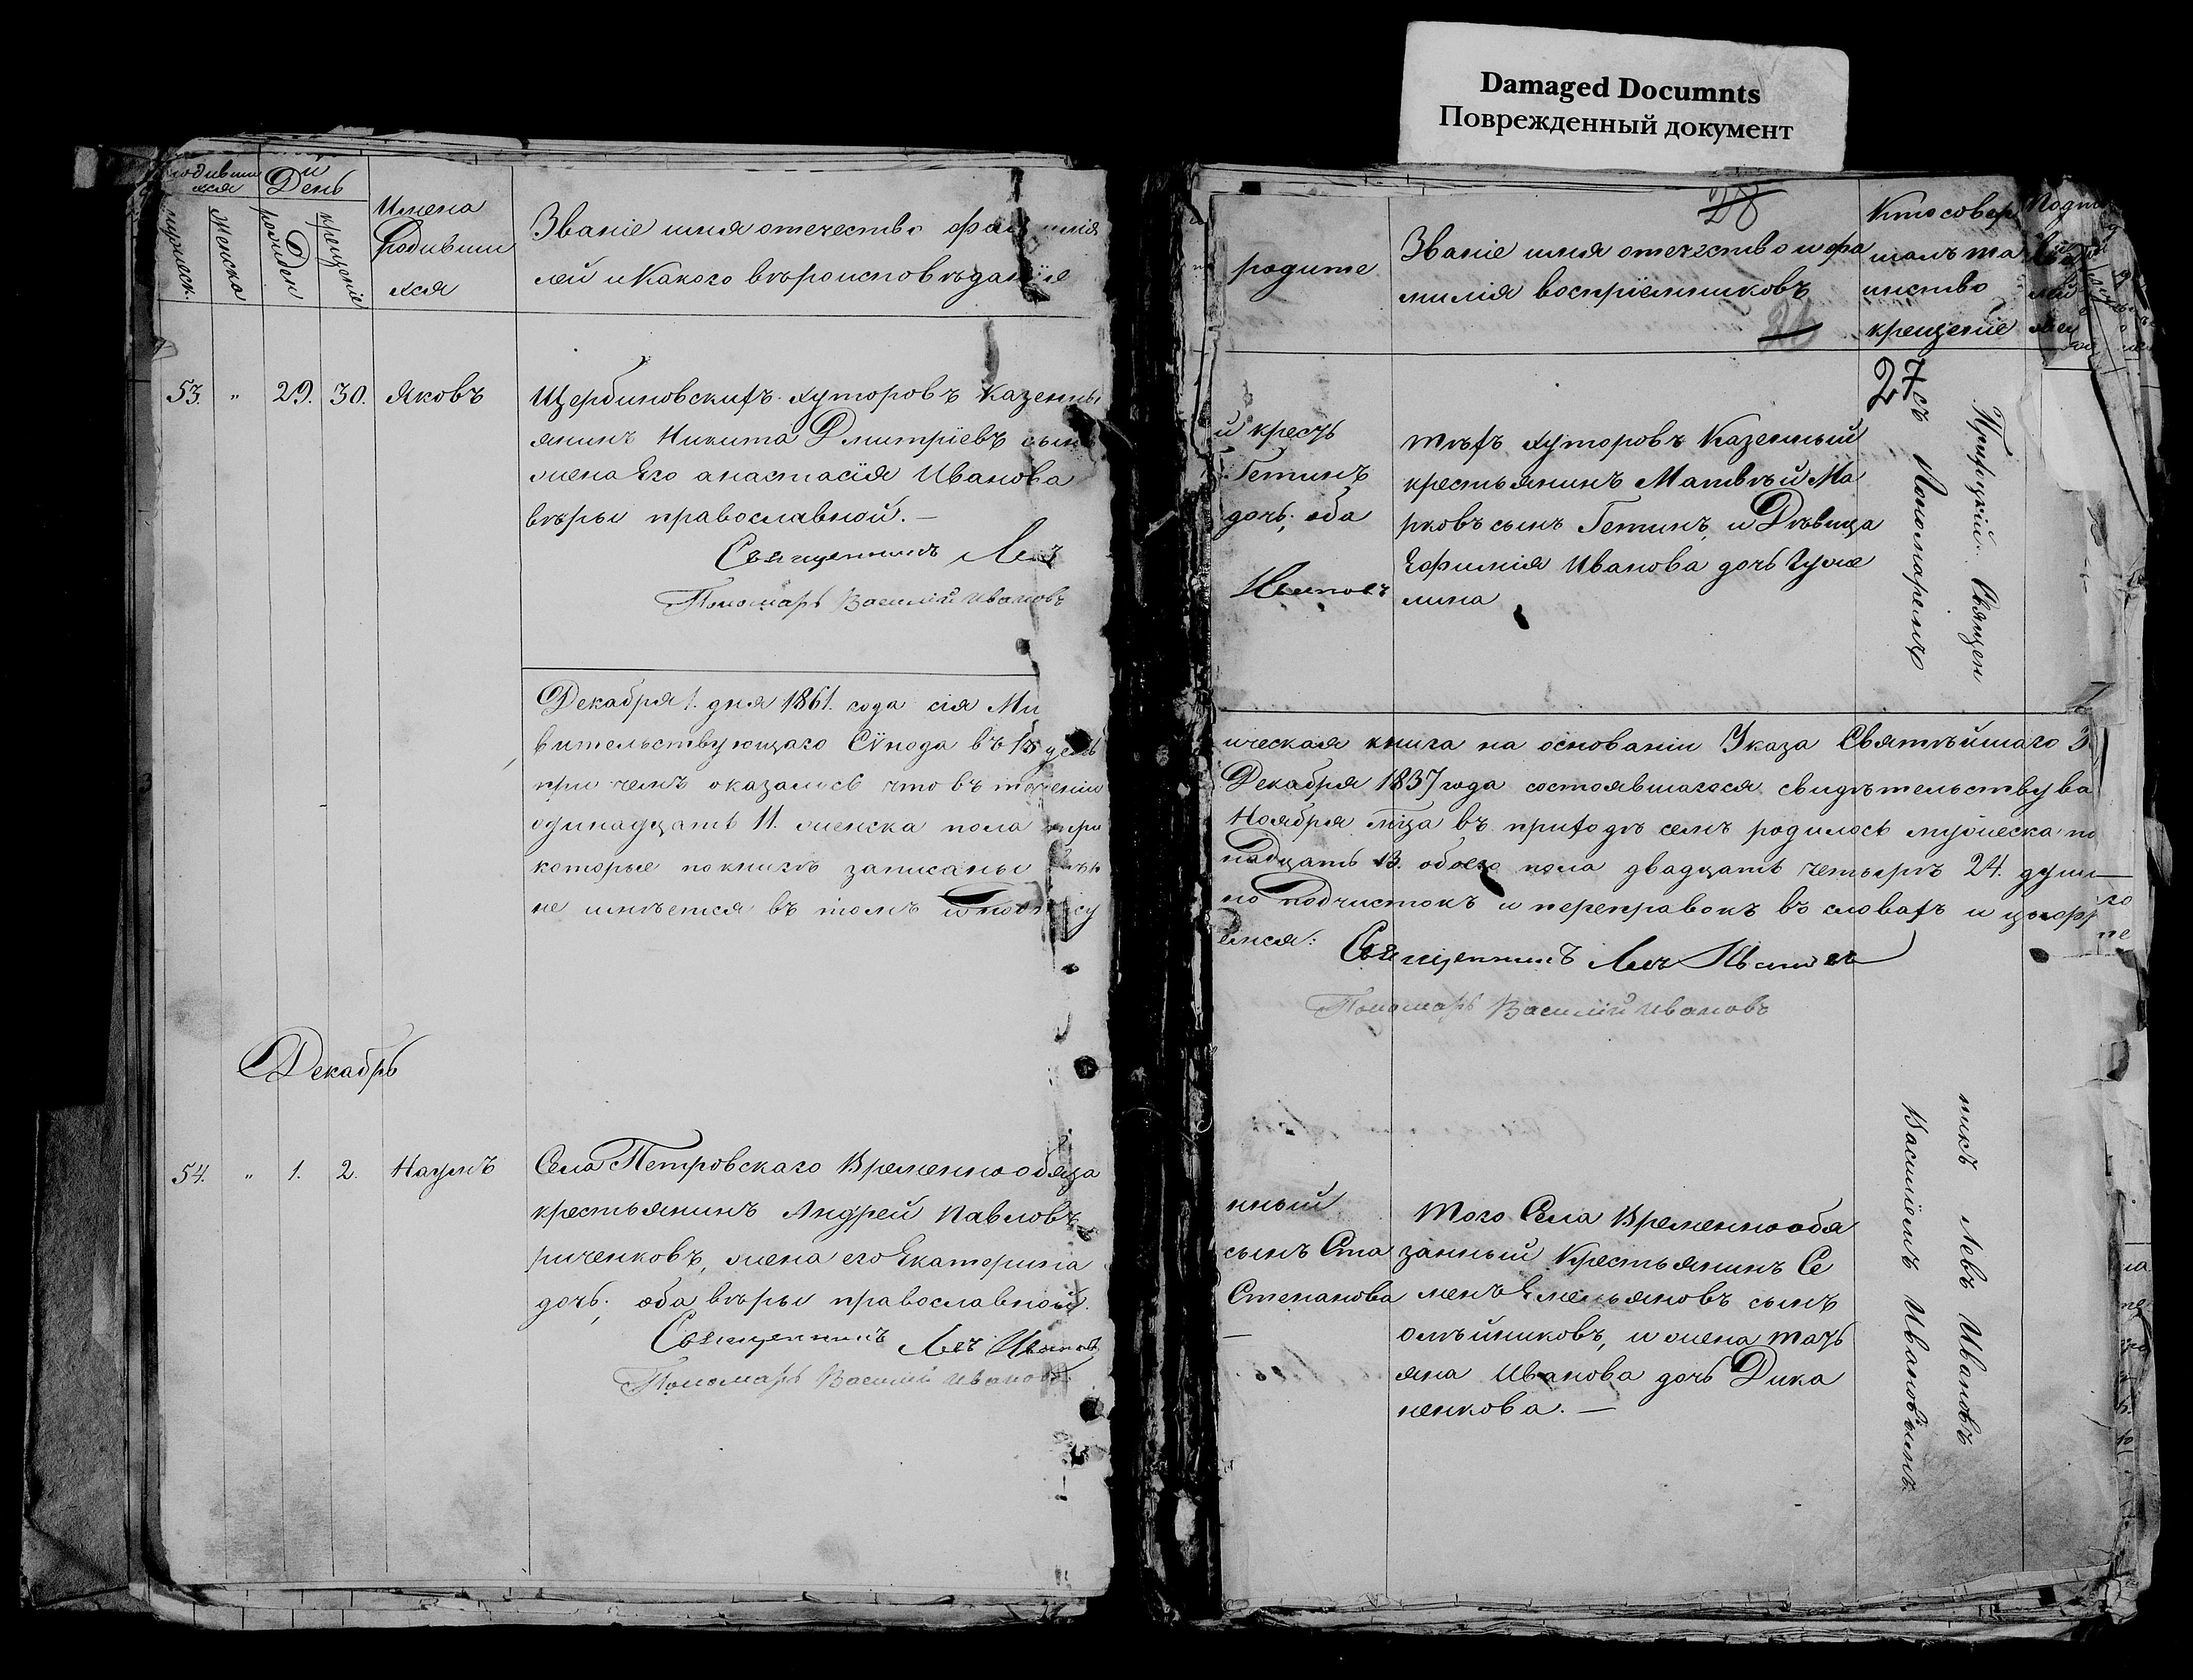 Damaged Documnts
Поврежденный документ
родивши
яся
День
мужеск.
женска
рожден
и
крещение
Имена
Родивши
хся
Званіе имя отечество фамилія
лей и какого вѣроисповѣданія
53. " 29. 30. Яковъ
Щербиновскихъ хуторовъ казенны
янинъ Никита Дмитріевъ сынъ
жена Его анастасія Иванова
вѣры православной. —
Священникъ Левъ
Пономарь Василій Ивановъ
Декабря 1. дня 1861. года сія
вительствующаго Сѵнода въ день
при чемъ оказалось что въ теченіи
одинадцать 11. женска пола три
которые по книгѣ записаны
не имѣется въ томъ и подпису
Декабрь
54. " 1. 2. Наумъ
Села Петровскаго Временнообяза
крестьянинъ Андрей Павловъ
риченковъ, жена его Екатерина
дочь, оба вѣры православной.
Священникъ Левъ Ивановъ
Пономарь Василій Ивановъ.
28
26
27
родите
Званіе имя отечество и фа
милія воспріемниковъ
Кто совер
шалъ та
инство
крещеніе
й кресть
Гетинъ
дочь. оба
Ивановъ
тѣхъ хуторовъ Казенный
крестьянинъ Матвѣй Ма
рковъ сынъ Гетинъ, и Дѣвица
Ефимія Иванова дочь Гуже
лина
Приходскій Священ
съ Пономаремъ
ическая книга на основаніи Указа Святѣйшаго
Декабря 1837 года состоявшагося свидѣтельствова
Ноября м͠ца въ приходѣ семъ родилось мужеска по
надцать 13. обоего пола двадцать четыре 24. души
но подчистокъ и переправокъ въ словахъ и цыфр
емся:
Священникъ Левъ Ивановъ
Пономарь Василій Ивановъ
нный
сынъ Ста
Степанова
—
Того Села Временнообя
занный Крестьянинъ Се
менъ Емельяновъ сынъ
олѣйниковъ, и жена Тать
яна Иванова дочь Дика
ненкова. —
никъ Левъ Ивановъ
Василіемъ Ивановымъ.